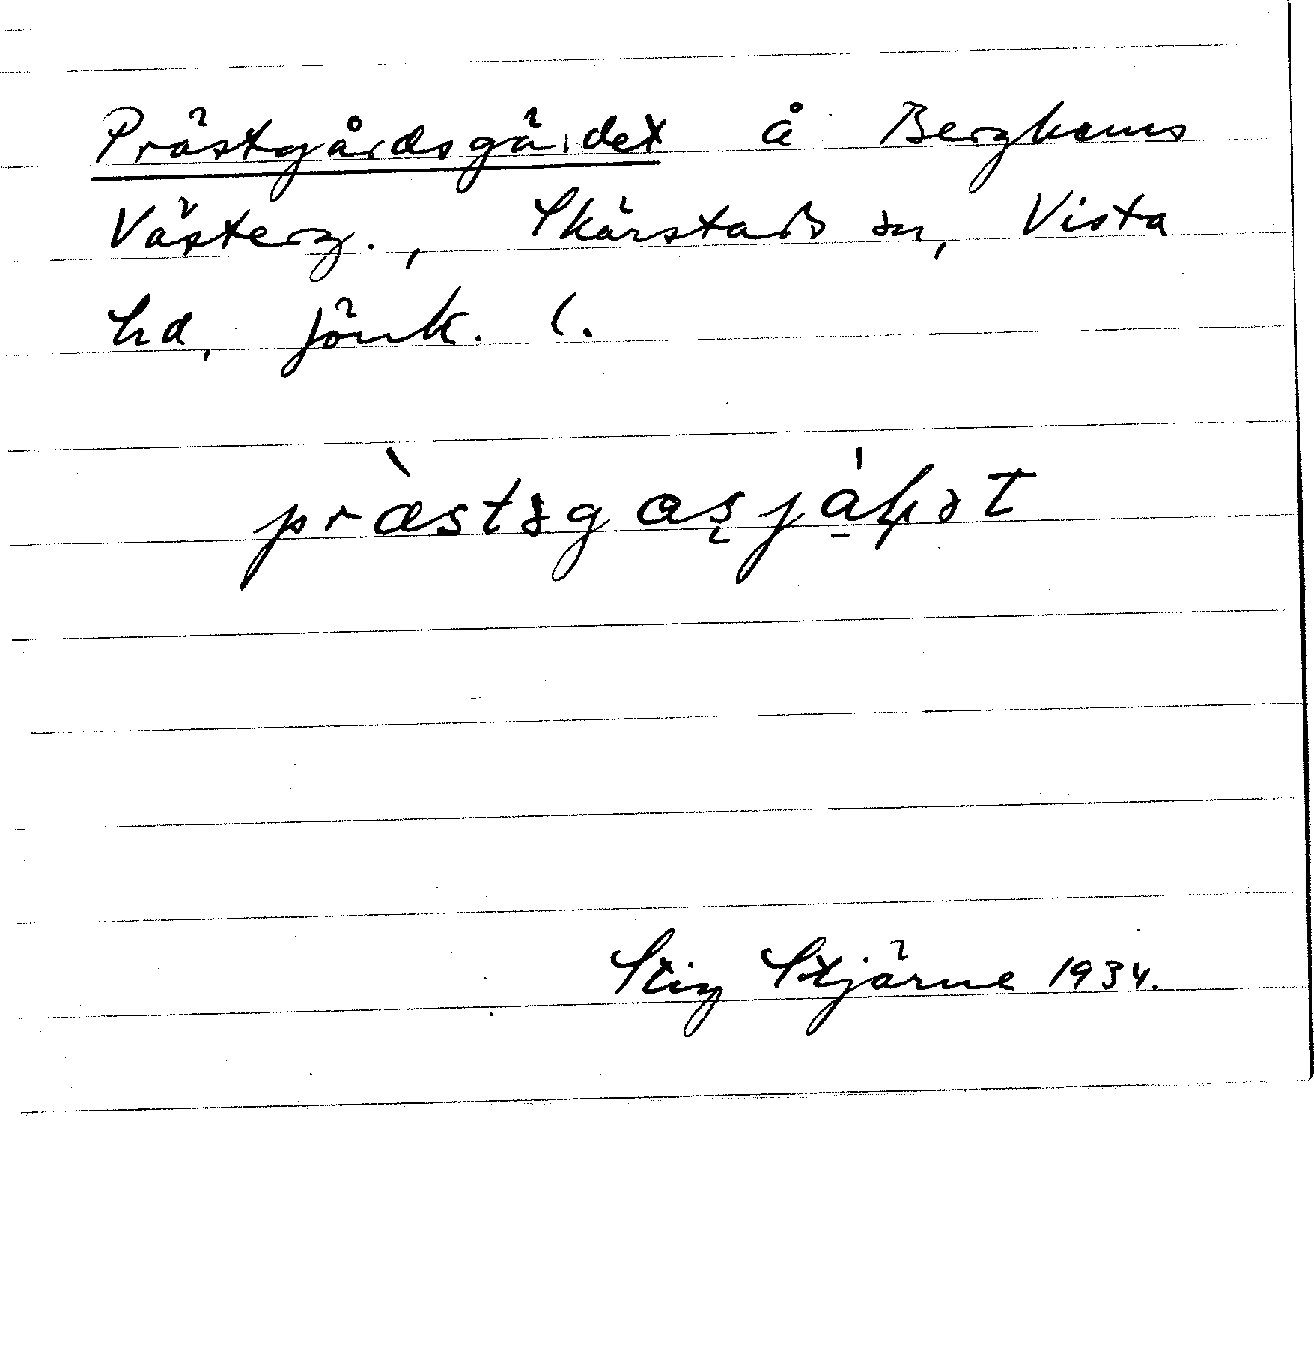 Prästgårdsgärdet å Berghems
Västerg., Skärstads sn, Vista
hd, Jönk. l.
Stig Stjärne 1934.